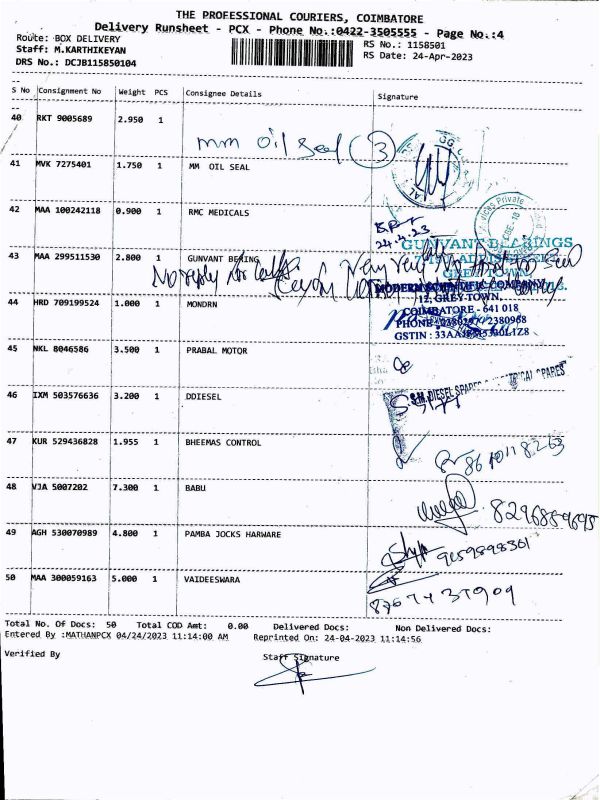 THE PROFESSIONAL COURIERS, COIMBATORE
Delivery Runsheet - PCX - Phone No.:0422-3505555 - Page No.:4
Route: BOX DELIVERY
RS No.: 1158501
Staff: M.KARTHIKEYAN
RS Date: 24-Apr-2023
DRS No.: DCJB115850104
S No Consignment No Weight PCS Consignee Details Signature
40 RKT 9005689 2.950 1
mm oil seal 3
41 MVK 7275401 1.750 1 MM OIL SEAL
42 MAA 100242118 0.900 1 RMC MEDICALS
24.4.23
GUNVANT BEARINGS
43 MAA 299511530 2.800 1 GUNVANT BERING
GREY TOWN,
No reply for
MODERN SCIENTIFIC COMPANY
44 HRD 709199524 1.000 1 MONDRN
12, GREY-TOWN,
COIMBATORE - 641 018
PHONE : 2380968
GSTIN : 33
45 NKL 8046586 3.500 1 PRABAL MOTOR
S.M. DIESEL SPARES
46 IXM 503576636 3.200 1 DDIESEL
47 KUR 529436828 1.955 1 BHEEMAS CONTROL
48 VJA 5007202 7.300 1 BABU
49 AGH 530070989 4.800 1 PAMBA JOCKS HARWARE
9159898361
50 MAA 300059163 5.000 1 VAIDEESWARA
Total No. Of Docs: 50 Total COD Amt: 0.00 Delivered Docs: Non Delivered Docs:
Entered By :MATHANPCX 04/24/2023 11:14:00 AM Reprinted On: 24-04-2023 11:14:56
Verified By Staff Signature